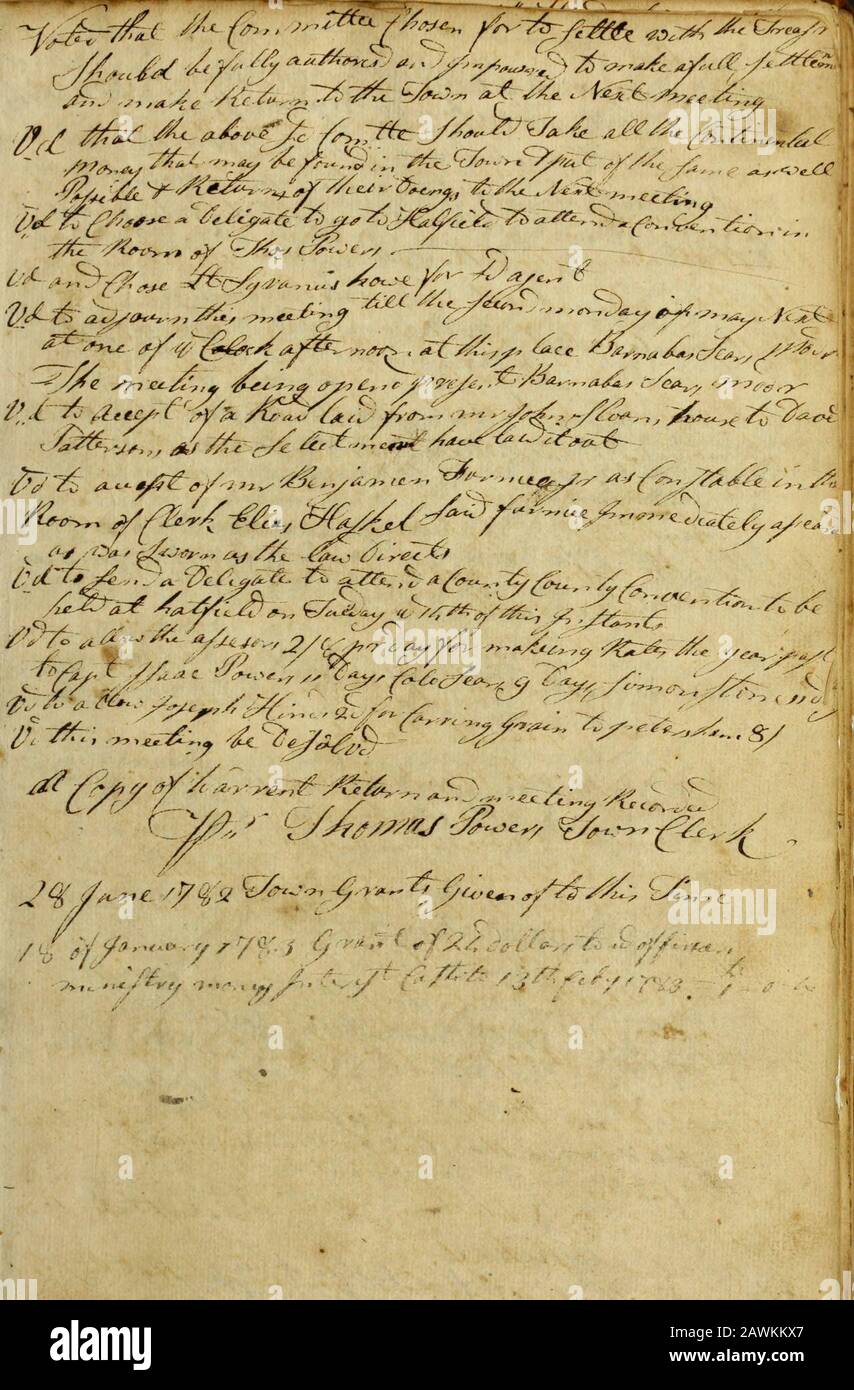 Voted that the Committee Chosen for to Settle with the Treasr
Should be fully authored and Impowred to make a full Settlem
and make Return to the Town at the Next meeting
Vd that the above sd Comtte Should Take all the Continental
money that may be found in the Town & put of the Same as well
Possible & Return of their Doengs to the Next meeting
Vd to Choose a Deligate to go to Hatfield to attend a Convention in
the Room of Thos Powers
Vd and Chose Lt Sylvanus howe for sd agent
Vd to adjourn this meeting till the Second monday of may Next
at one of ye Colock afternoon at this place Barnabas Sears modr
The meeting being opend present Barnabas Sears moor
Vd to accept of a Road laid from mr John Sloans house to Davd
Pattersons as the Sellectment have laid it out
Vd to accept of mr Benjamen Jr as Constable in the
Room of Clerk Elias Haskel Said Immedeately apeard
as was Sworn as the law Directs
Vd to Send a Delegate to attend a County County Convention to be
held at hatfield on Tusday ye of this Instant
Vd to allow the assesors 2/8 pr Day for makeing Rates the year past
to Capt Isaac Powers 11 Days Cole Sears 9 Days Simon
Vd to allow Joseph Hinds 2d for Carring Grain to petersham 8/
Vd this meeting be Desolvd
A Copy of Warrent Return and meeting Recorded
Pr Thomas Powers Town Clerk
28 June 1782 Town Grants Given of to this Time
18 of January 1783 Grant of 26 dollars to
ministry money Interest 13th feby 1783
alamy
Image ID: 2AWKKX7
www.alamy.com